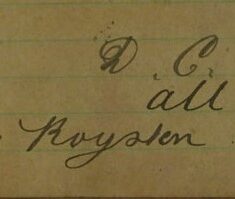 D. C.
all
Roysten